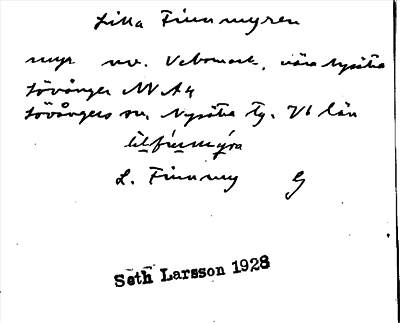 Lilla Finnmyren
myr nv. Vebomark, nära Nysätra
Lövånger NV A4
Lövångers sn. Nysätra tg. Vb län
lilfinmyra
L. Finnmy G
Seth Larsson 1928